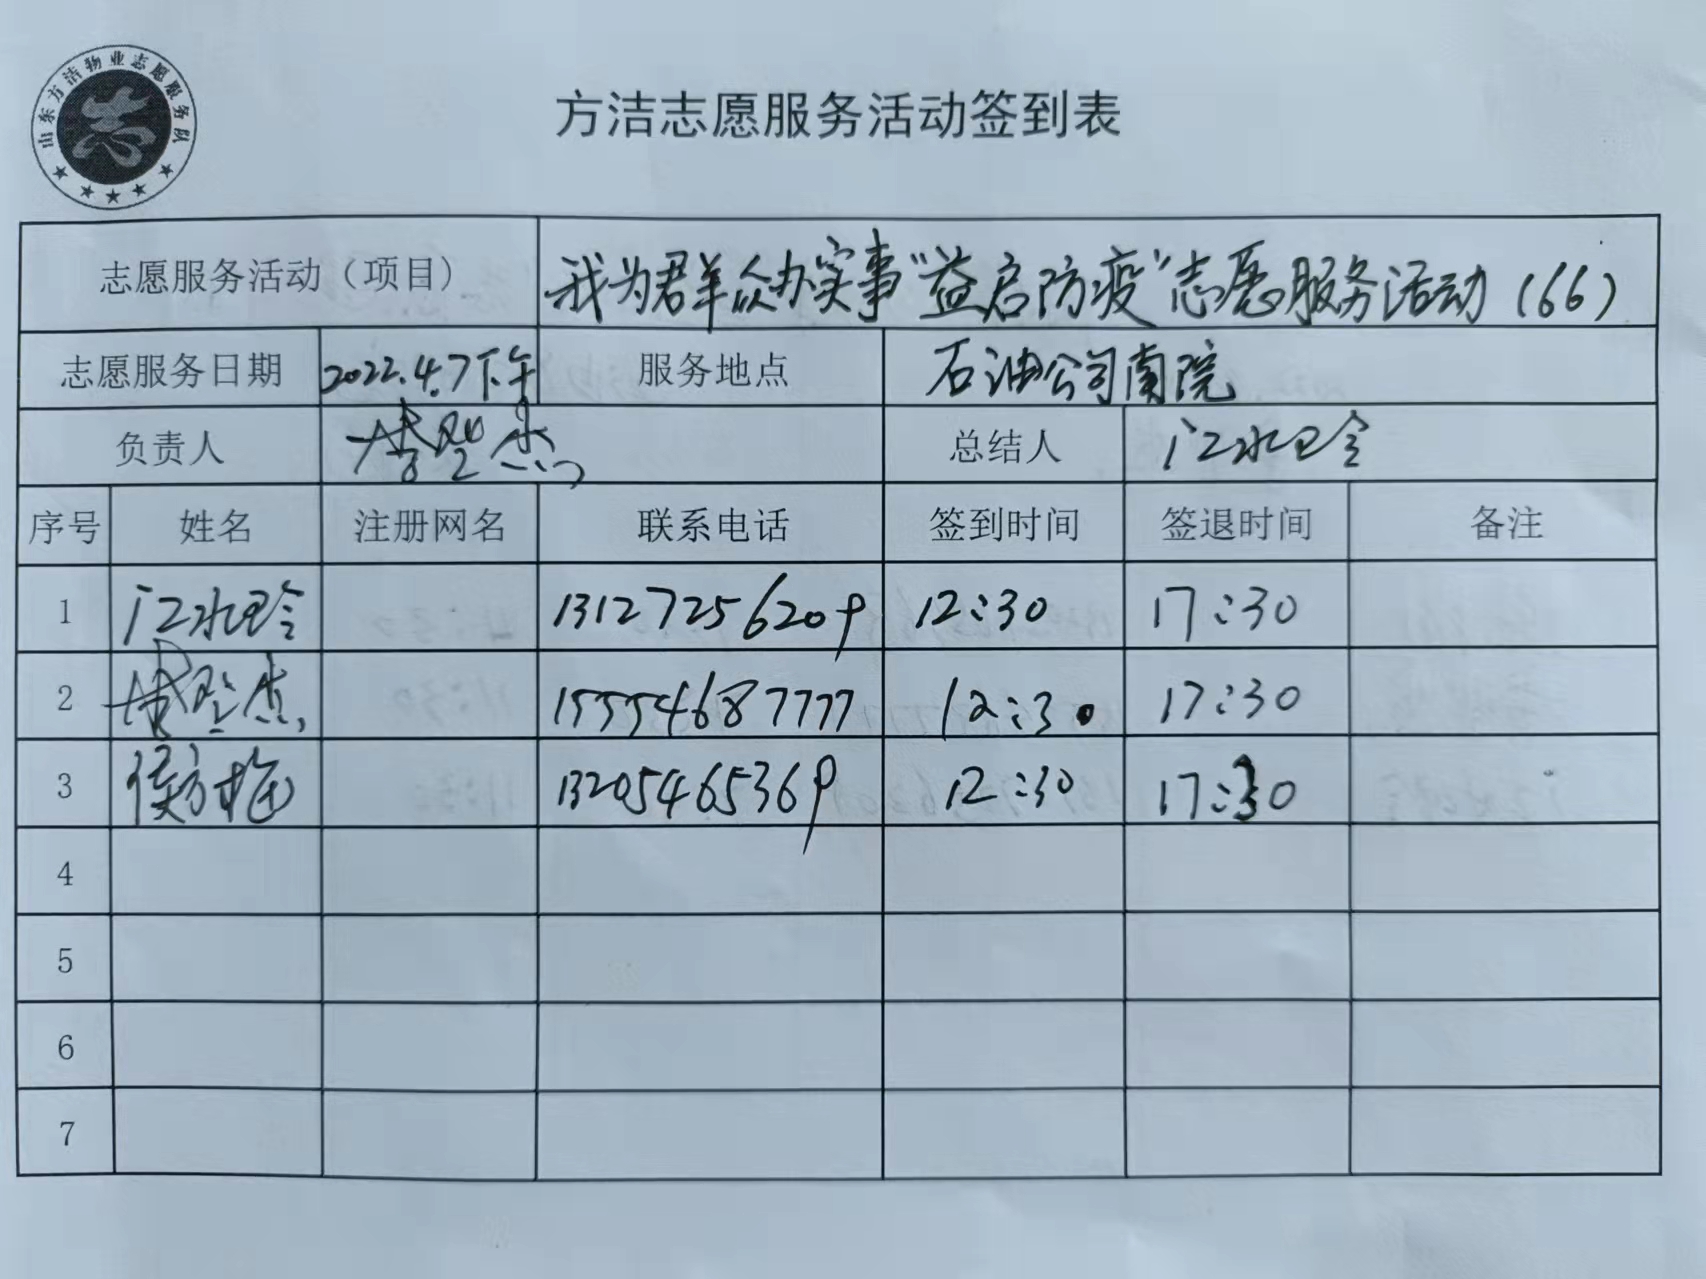 山东方洁物业志愿服务队
志
方洁志愿服务活动签到表
志愿服务活动（项目） 我为群众办实事“益启防疫”志愿服务活动（66）
志愿服务日期 2022.4.7下午 服务地点 石油公司南院
负责人 总结人 江水玲
序号 姓名 注册网名 联系电话 签到时间 签退时间 备注
1 江水玲 13127256209 12:30 17:30
2 15554687777 12:30 17:30
3 侯方梅 13205465369 12:30 17:30
4
5
6
7